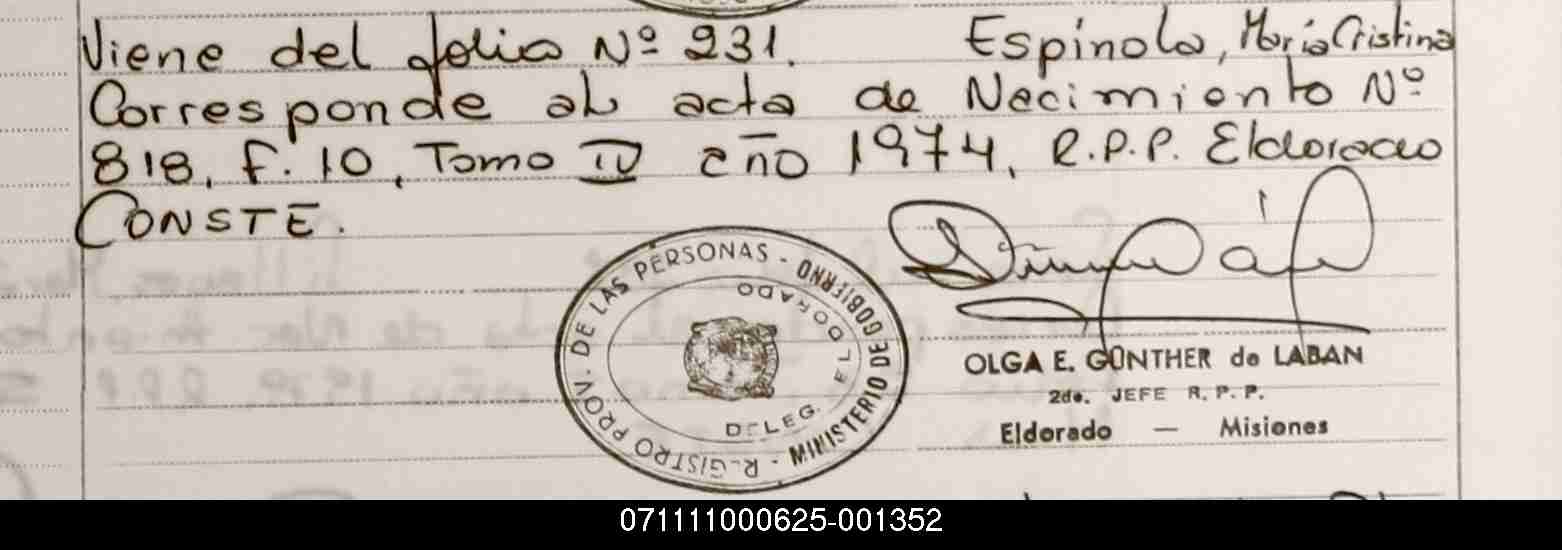 Viene del folio Nº 231. Espínola, María Cristina
Corresponde al acta de Nacimiento Nº
818, F. 10, Tomo IV año 1974, R.P.P. Eldorado
CONSTE.
REGISTRO PROV. DE LAS PERSONAS - MINISTERIO DE GOBIERNO
DELEG. ELDORADO
OLGA E. GÜNTHER de LABAN
2do. JEFE R. P. P.
Eldorado — Misiones
071111000625-001352